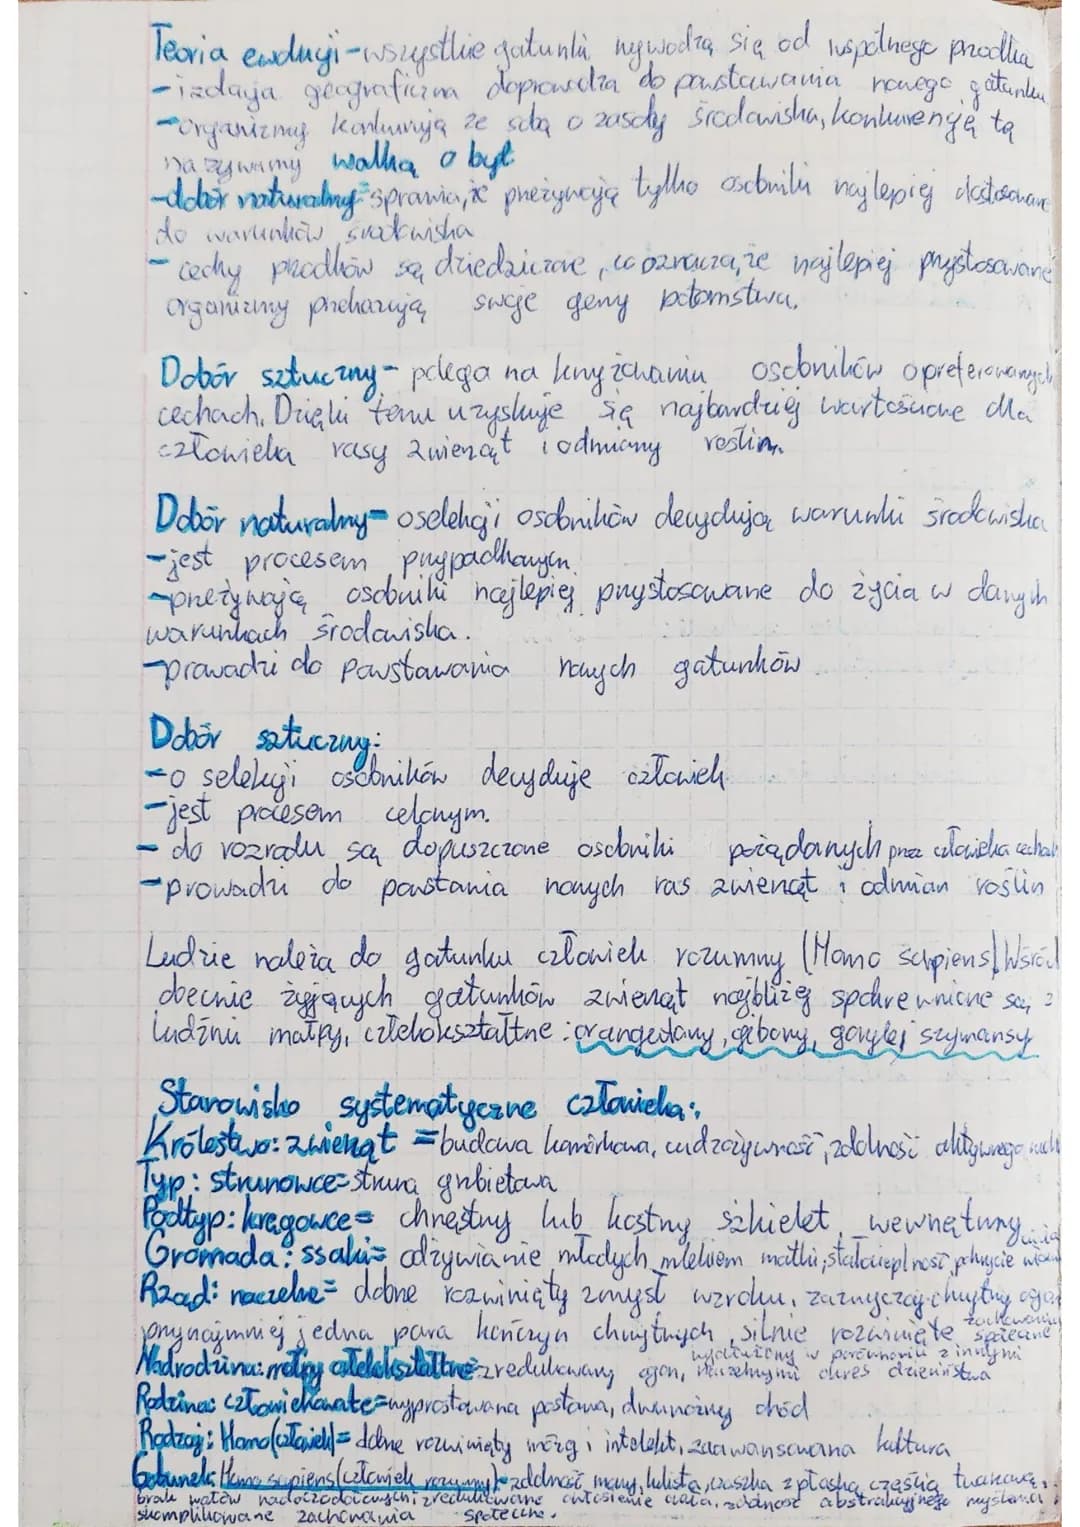 Teoria ewolucji - wszystkie gatunki wywodzą się od wspólnego przodka
- izolacja geograficzna doprowadza do powstawania nowego gatunku
- organizmy konkurują ze sobą o zasoby środowiska, konkurencję tą
nazywamy walką o byt
- dobór naturalny = sprawia, że przeżywają tylko osobniki najlepiej dostosowane
do warunków środowiska
- cechy przodków są dziedziczone, co oznacza, że najlepiej przystosowane
organizmy przekazują swoje geny potomstwu.
Dobór sztuczny - polega na krzyżowaniu osobników o preferowanych
cechach. Dzięki temu uzyskuje się najbardziej wartościowe dla
człowieka rasy zwierząt i odmiany roślin.
Dobór naturalny = o selekcji osobników decydują warunki środowiska
- jest procesem przypadkowym
- przeżywają osobniki najlepiej przystosowane do życia w danych
warunkach środowiska.
- prowadzi do powstawania nowych gatunków
Dobór sztuczny:
- o selekcji osobników decyduje człowiek
- jest procesem celowym.
- do rozrodu są dopuszczone osobniki pożądanych przez człowieka cechach
- prowadzi do powstania nowych ras zwierząt i odmian roślin
Ludzie należą do gatunku człowiek rozumny (Homo sapiens) Wśród
obecnie żyjących gatunków zwierząt najbliżej spokrewnione są z
ludźmi małpy, człekokształtne: orangutany, gibony, goryle i szympansy
Stanowisko systematyczne człowieka:
Królestwo: zwierząt = budowa komórkowa, cudzożywność, zdolność aktywnego ruchu
Typ: strunowce = struna grzbietowa
Podtyp: kręgowce = chrzęstny lub kostny szkielet wewnętrzny
Gromada: ssaki = odżywianie młodych mlekiem matki, stałocieplność, pokrycie
Rząd: naczelne = dobrze rozwinięty zmysł wzroku, zazwyczaj chwytny ogon
przynajmniej jedna para kończyn chwytnych, silnie rozwinięte zachowania społeczne
Nadrodzina: małpy człekokształtne = zredukowany ogon, wydłużony w porównaniu z innymi naczelnymi okres dzieciństwa
Rodzina: człowiekowate = wyprostowana postawa, dwunożny chód
Rodzaj: Homo (człowiek) = dobrze rozwinięty mózg i intelekt, zaawansowana kultura
Gatunek: Homo sapiens (człowiek rozumny) = zdolność mowy, czaszka z płaską częścią twarzową,
brak wałów nadoczodołowych, zredukowane owłosienie ciała, zdolność abstrakcyjnego myślenia i
skomplikowane zachowania społeczne.